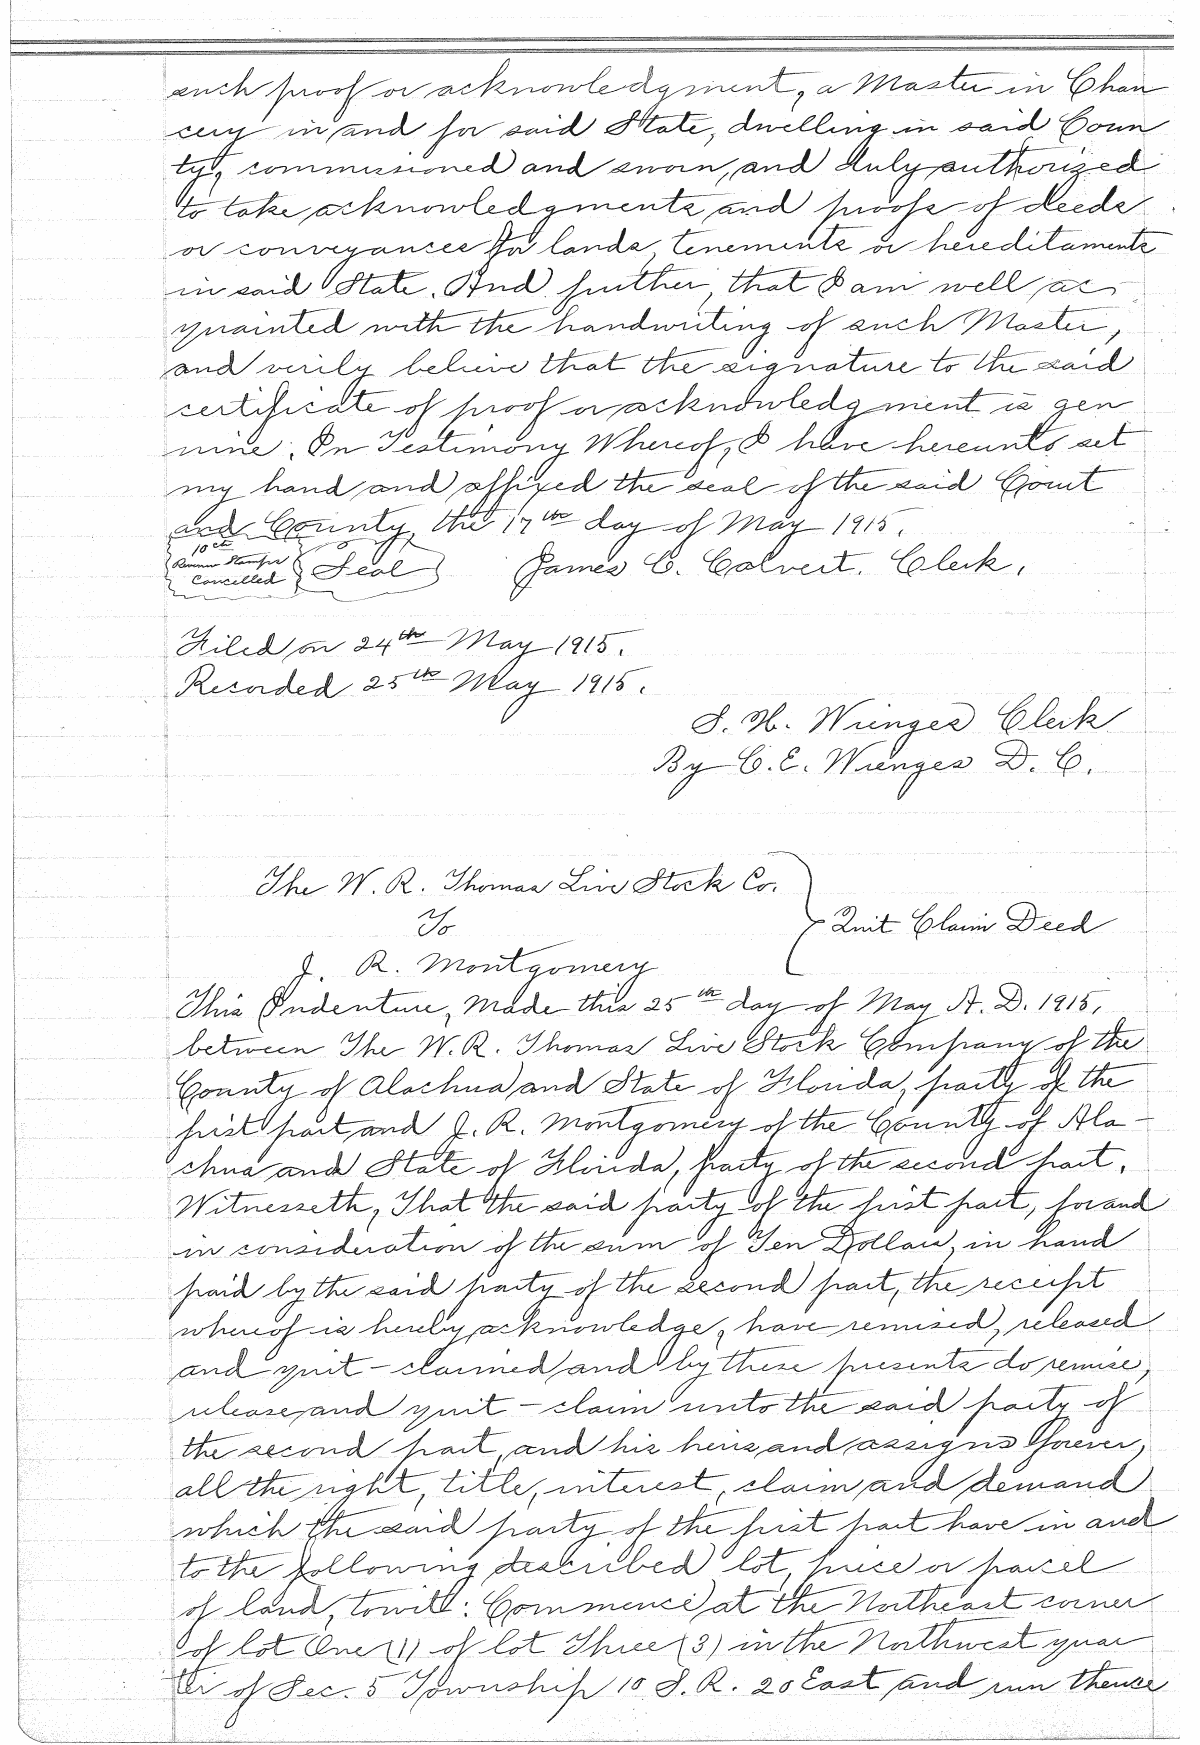 such proof or acknowledgment, a Master in Chan
cery in and for said State, dwelling in said Coun
ty, commissioned and sworn, and duly authorized
to take acknowledgments and proofs of deeds
or conveyances for lands, tenements or hereditaments
in said State. And further, that I am well ac
quainted with the handwriting of such Master,
and verily believe that the signature to the said
certificate of proof or acknowledgment is gen
uine. In Testimony Whereof, I have hereunto set
my hand and affixed the seal of the said Court
and County, the 17th day of May 1915.
10 ct
Revenue Stamps
Cancelled
Seal
James C. Calvert. Clerk.
Filed on 24th May 1915.
Recorded 25th May 1915.
S. H. Wienges Clerk
By C. E. Wienges D. C.
The W. R. Thomas Live Stock Co.
To
Quit Claim Deed
J. R. Montgomery
This Indenture, Made this 25th day of May A. D. 1915,
between The W. R. Thomas Live Stock Company of the
County of Alachua and State of Florida, party of the
first part and J. R. Montgomery of the County of Ala-
chua and State of Florida, party of the second part,
Witnesseth, That the said party of the first part, for and
in consideration of the sum of Ten Dollars, in hand
paid by the said party of the second part, the receipt
whereof is hereby acknowledge, have remised, released
and quit-claimed and by these presents do remise,
release and quit-claim unto the said party of
the second part, and his heirs and assigns forever,
all the right, title, interest, claim and demand
which the said party of the first part have in and
to the following described lot, piece or parcel
of land, towit: Commence at the Northeast corner
of lot One (1) of lot Three (3) in the Northwest quar
ter of Sec. 5 Township 10 S. R. 20 East and run thence